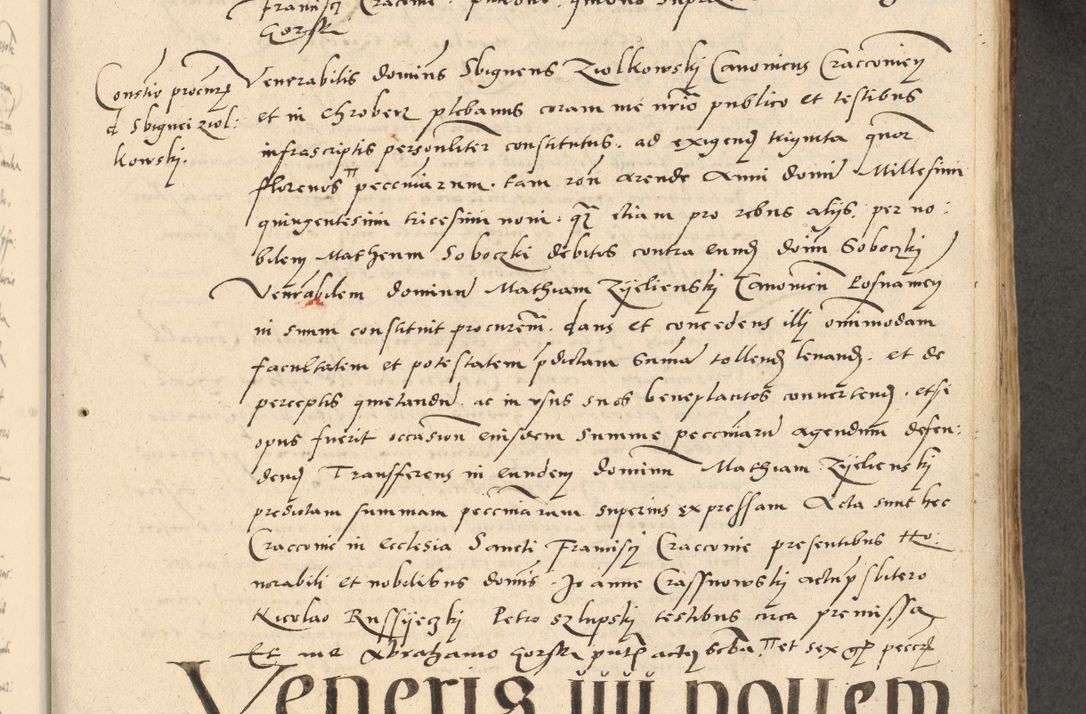 Gorsk
Constio procurem
d Sbignei ziol:
kowskj.
Venerabilis dominus Sbigneus Ziolkowskj Canonicus Cracconien
et in Chrober plebanus coram me nrio publico et testibus
infrascriptis personliter constitutus. ad exigend triginta quor
florenos pecuniarum. tam ron arende Anni domi Millesimi
quingentesimi tricesimi noni. etiam pro rebus alijs. per no:
bilem Matheum Soboczki debitos contra eund dom Soboczkj
Venerabilem dominum Mathiam Zÿelienskj Canonicu Posnamen
in suum constituit procurem. dans et concedens illj omnimodam
facultatem et potestatem pdictam Suma tollend levand. et de
perceptis quietandi. ac in usus suos beneplacitos convertend. etsi
opus fuerit occasion eiusdem summe pecuniaru agendum defen:
dend Transferens in eundem dominum Mathiam Zÿelienskj
predictam summam pecuniarum superius expressam Acta sunt hec
Cracconie in ecclesia Sancti Francisj Cracconie presentibus Ho:
norabili et nobilibus domis. Joanne Crassnowskj actu psbitero
Nicolao Russÿeczkj Petro Szlupskj testibus circa premissa
Et me Abrahamo Gorsk putm actu scba et sex gr pecc
Veneris iiii novem